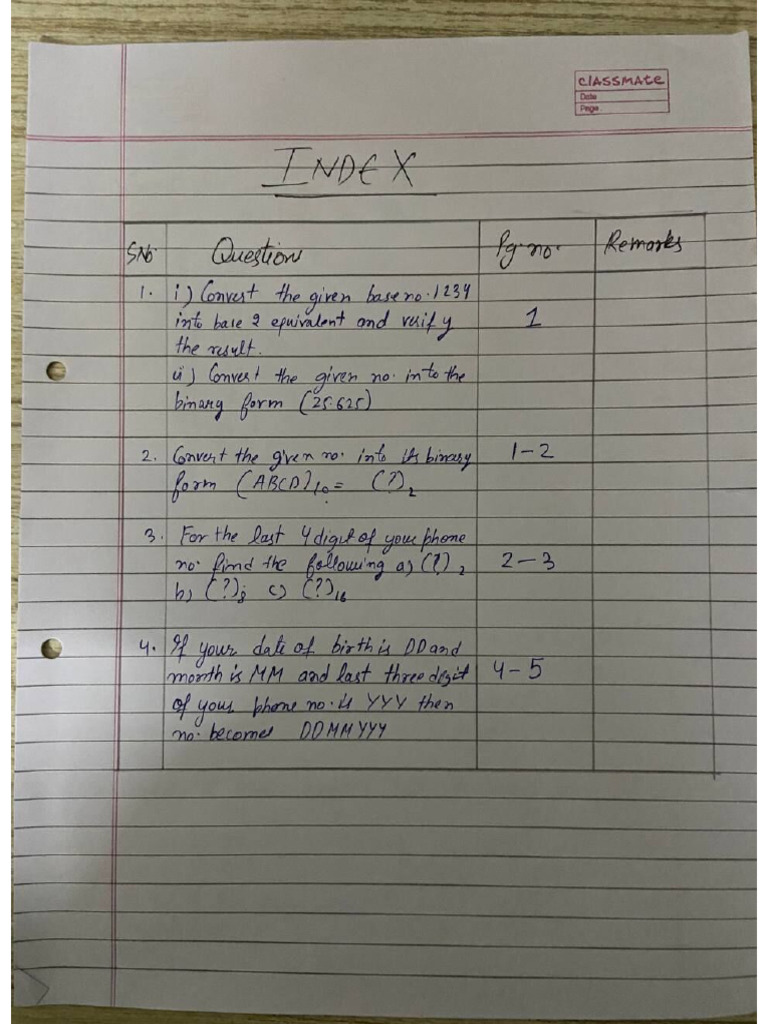 classmate
Date
Page
INDEX
S.No. Question Pg. no. Remarks
1. i) Convert the given base no. 1234
into base 2 equivalent and verify 1
the result.
ii) Convert the given no. into the
binary form (25.625)
2. Convert the given no. into its binary 1-2
form (ABCD)10 = (?)2
3. For the last 4 digit of your phone
no. find the following a) (?)2 2-3
b) (?)8 c) (?)16
4. If your date of birth is DD and
month is MM and last three digit 4-5
of your phone no. is YYY then
no. becomes DDMMYYY